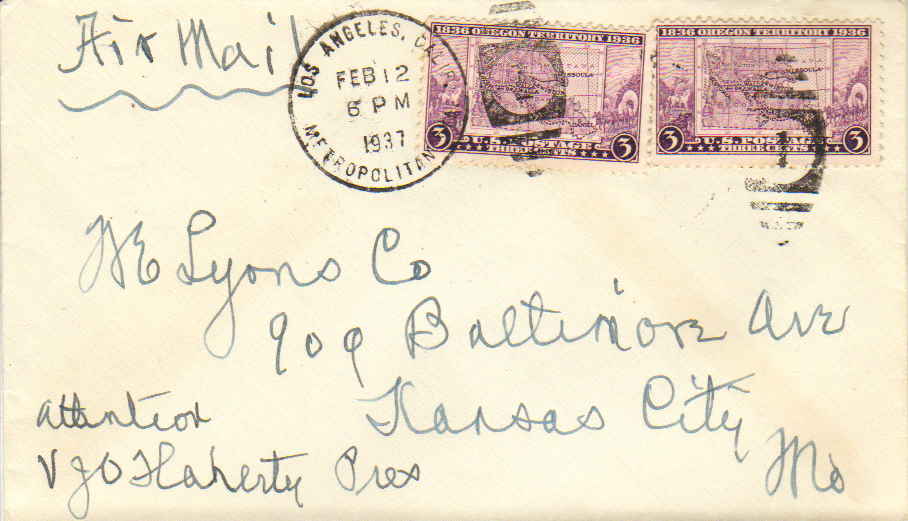 Air Mail
LOS ANGELES, CAL
FEB 12
6 PM
1937
METROPOLITAN
1836 OREGON TERRITORY 1936
3 U.S. POSTAGE 3
THREE CENTS
1836 OREGON TERRITORY 1936
3 U.S. POSTAGE 3
THREE CENTS
WE Lyons Co
909 Baltimore Ave
Kansas City
Mo
attention
V J O'Flaherty Pres